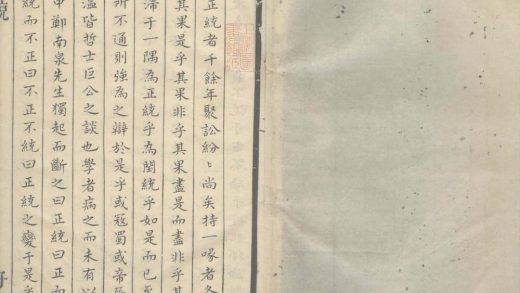 正統者千餘年聚訟紛〻尚矣持一喙者各
其果是乎其果非乎其果盡是而盡非乎其
滯于一隅為正統乎為閏統乎如是而已至
所不通則強為之辯於是乎或寇蜀或帝
溫皆哲士巨公之談也學者病之而未有以
中鄭南泉先生獨起而斷之曰正統曰正而
統而不正曰不正不統曰正統之變于是乎